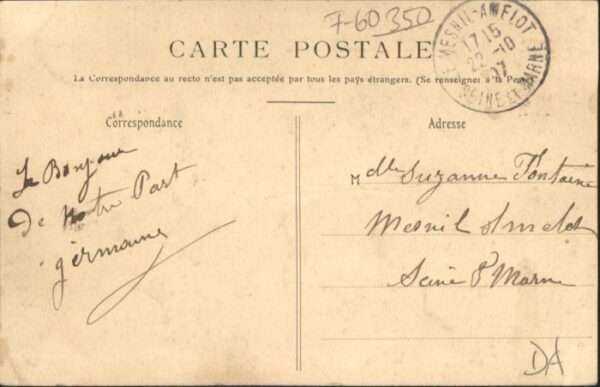 7-60 350
LE MESNIL-AMELOT
17 15
22-10
07
SEINE ET MARNE
CARTE POSTALE
La Correspondance au recto n'est pas acceptée par tous les pays étrangers. (Se renseigner à la Poste)
Correspondance
Adresse
Le Bonjour
De Notre Part
germaine
Mdlle Suzanne Fontaine
Mesnil amelot
Seine & Marne
DA